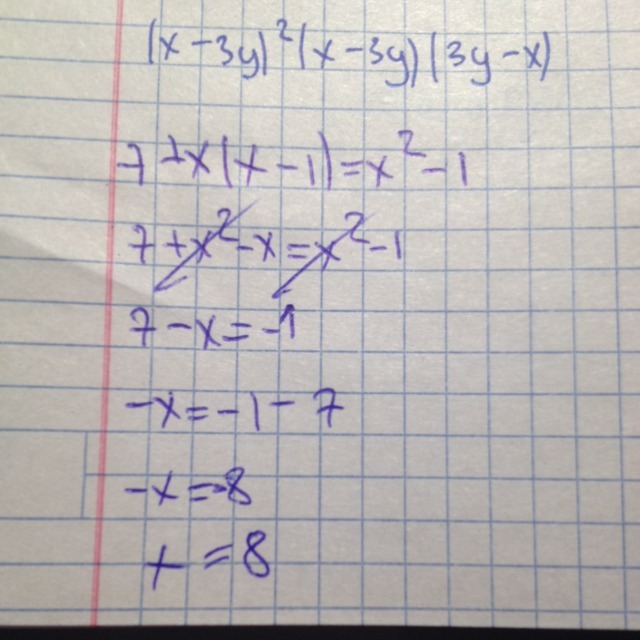 (x-3y)²(x-3y)(3y-x)
7+x(x-1)=x²-1
7+x²-x=x²-1
7-x=-1
-x=-1-7
-x=-8
x=8